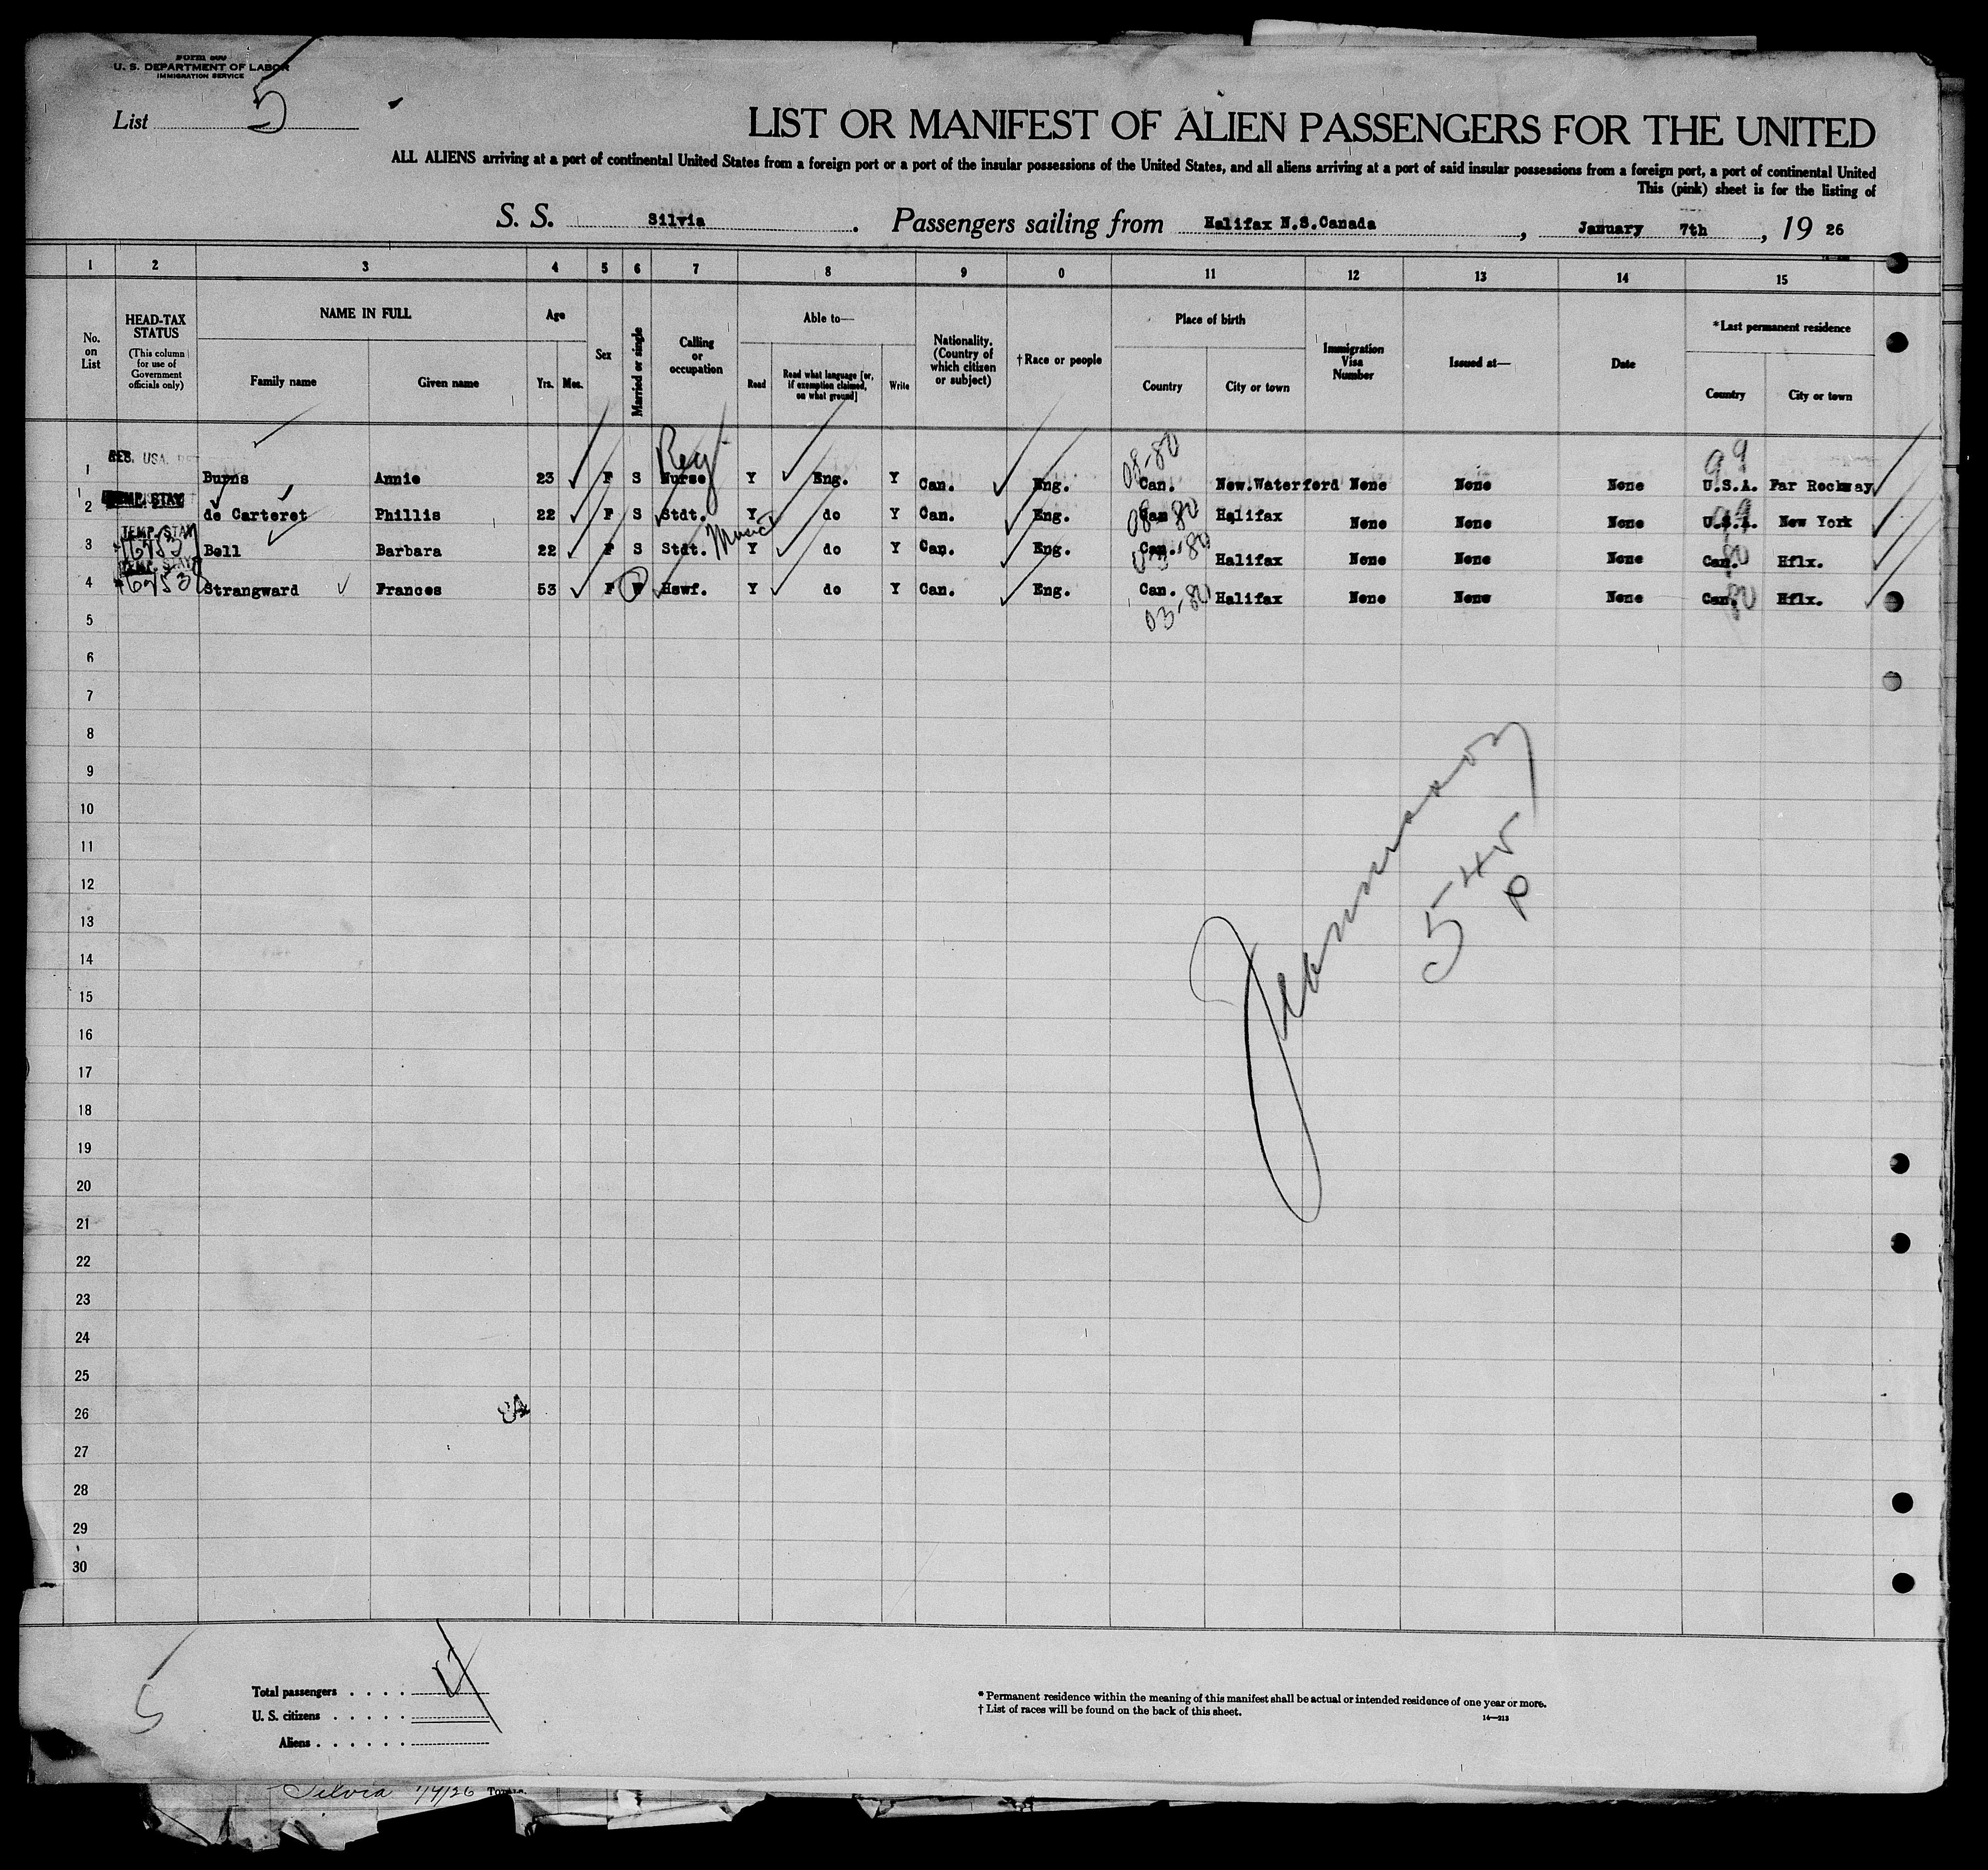 Form 500
U. S. DEPARTMENT OF LABOR
IMMIGRATION SERVICE
List 5
LIST OR MANIFEST OF ALIEN PASSENGERS FOR THE UNITED
ALL ALIENS arriving at a port of continental United States from a foreign port or a port of the insular possessions of the United States, and all aliens arriving at a port of said insular possessions from a foreign port, a port of continental United
This (pink) sheet is for the listing of
S. S. Silvia. Passengers sailing from Halifax N.S.Canada, January 7th, 19 26
1 2 3 4 5 6 7 8 9 0 11 12 13 14 15
No. on List
HEAD-TAX STATUS
(This column for use of Government officials only)
NAME IN FULL
Family name
Given name
Age
Yrs.
Mos.
Sex
Married or single
Calling or occupation
Able to—
Read
Read what language [or, if exemption claimed, on what ground]
Write
Nationality. (Country of which citizen or subject)
† Race or people
Place of birth
Country
City or town
Immigration Visa Number
Issued at—
Date
*Last permanent residence
Country
City or town
Reg 08-80 99
1 RES. USA. Burns Annie 23 F S Nurse Y Eng. Y Can. Eng. Can. New.Waterford None None None U.S.A. Far Rockway
2 TEMP. STAY de Carteret Phillis 22 F S Stdt. Y do Y Can. Eng. Can 08-80 Halifax None None None U.S.A. New York
Music
3 TEMP. STAY Bell Barbara 22 F S Stdt. Y do Y Can. Eng. Can. 03-80 Halifax None None None Can. 80 Hflx.
4 TEMP. STAY Strangward Frances 53 F W Hswf. Y do Y Can. Eng. Can. Halifax None None None Can. 80 Hflx.
03-80
5
6
7
8
9
10
11
12
13
14
15
16
17
18
19
20
21
22
23
24
25
26
27
28
29
30
5
Total passengers
U. S. citizens
Aliens
* Permanent residence within the meaning of this manifest shall be actual or intended residence of one year or more.
† List of races will be found on the back of this sheet.
14—213
Silvia